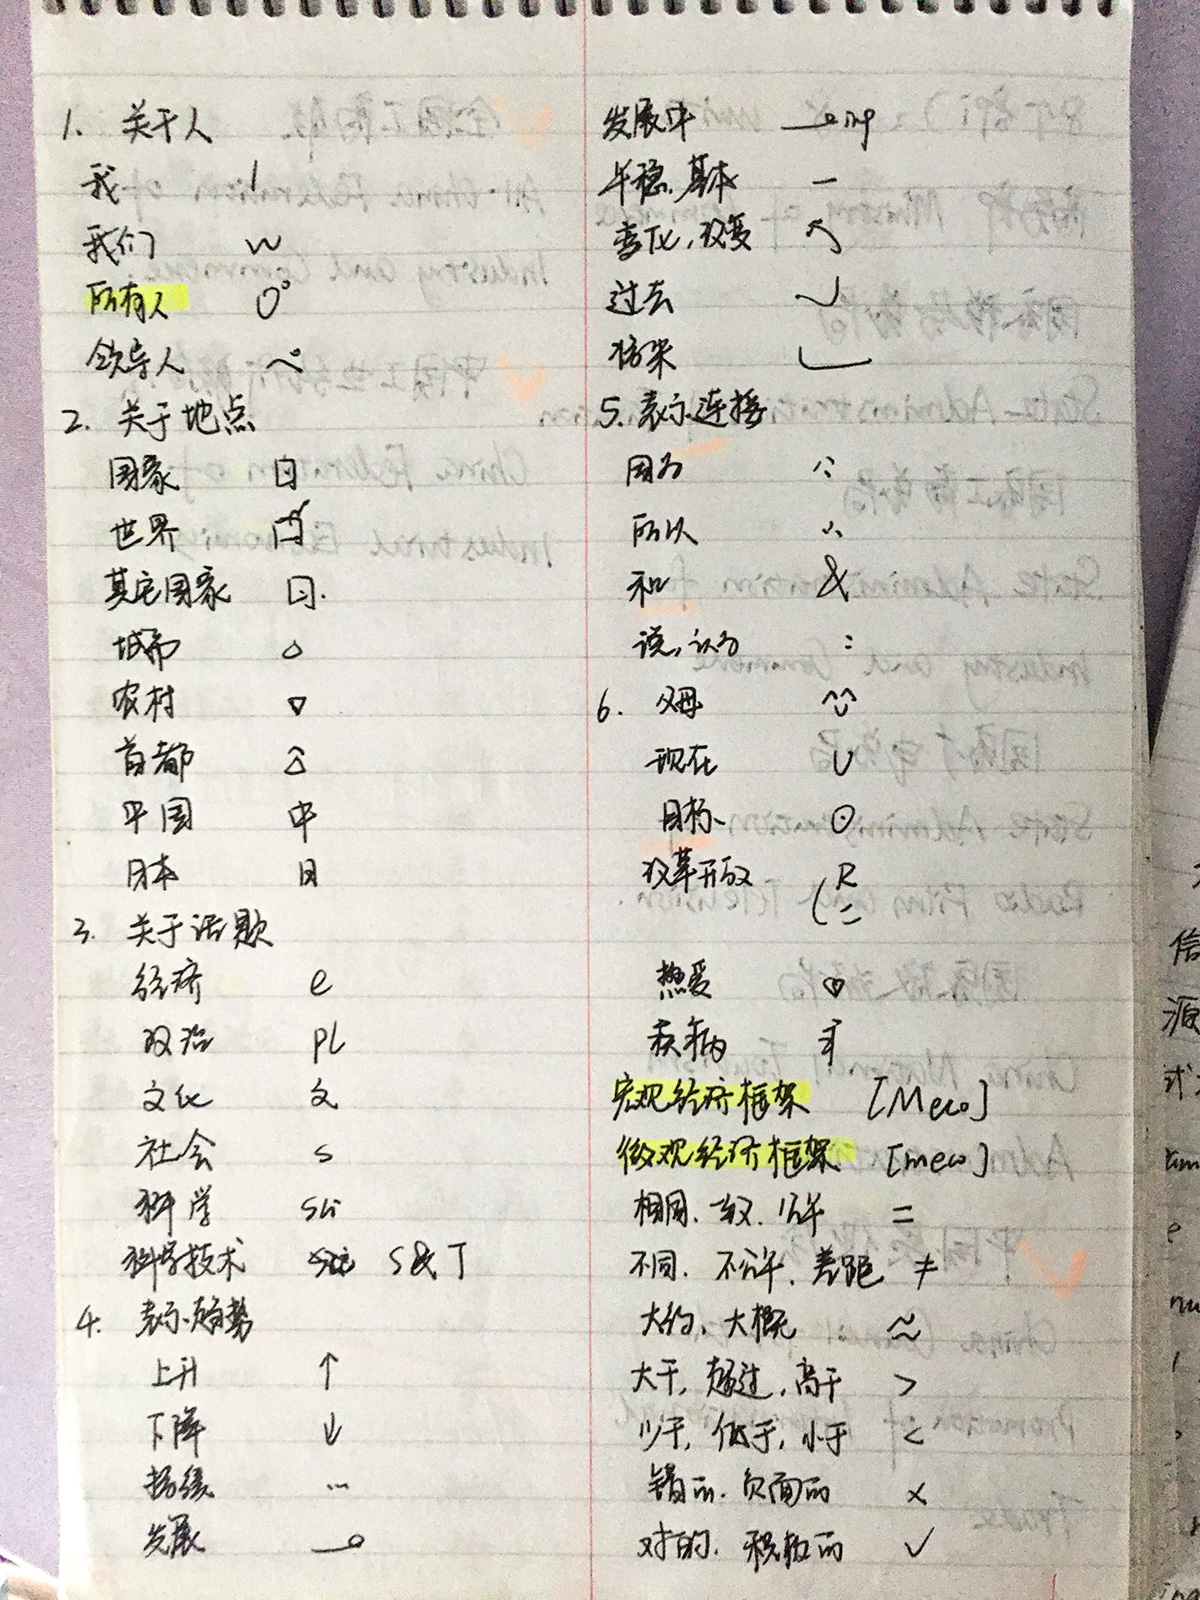 1. 关于人
我 I
我们 w
所有人
领导人
2. 关于地点
国家
世界
其它国家
城市
农村
首都
中国 中
日本 日
3. 关于话题
经济 e
政治 pl
文化 文
社会 s
科学 sci
科学技术 S&T
4. 表示趋势
上升 ↑
下降 ↓
持续 …
发展
发展中 ing
平稳,基本 —
变化,改变
过去
框架
5. 表示连接
因为 ∵
所以 ∴
和 &
说,认为 :
6. 父母
现在 U
目标 ⊙
改革开放 R
热爱 ♡
疾病
宏观经济框架 [Meco]
微观经济框架 [meco]
相同、一致、公平 =
不同、不公平、差距 ≠
大约、大概 ≈
大于,超过,高于 >
少于,低于,小于 <
错的、负面的 ×
对的、积极的 ✓